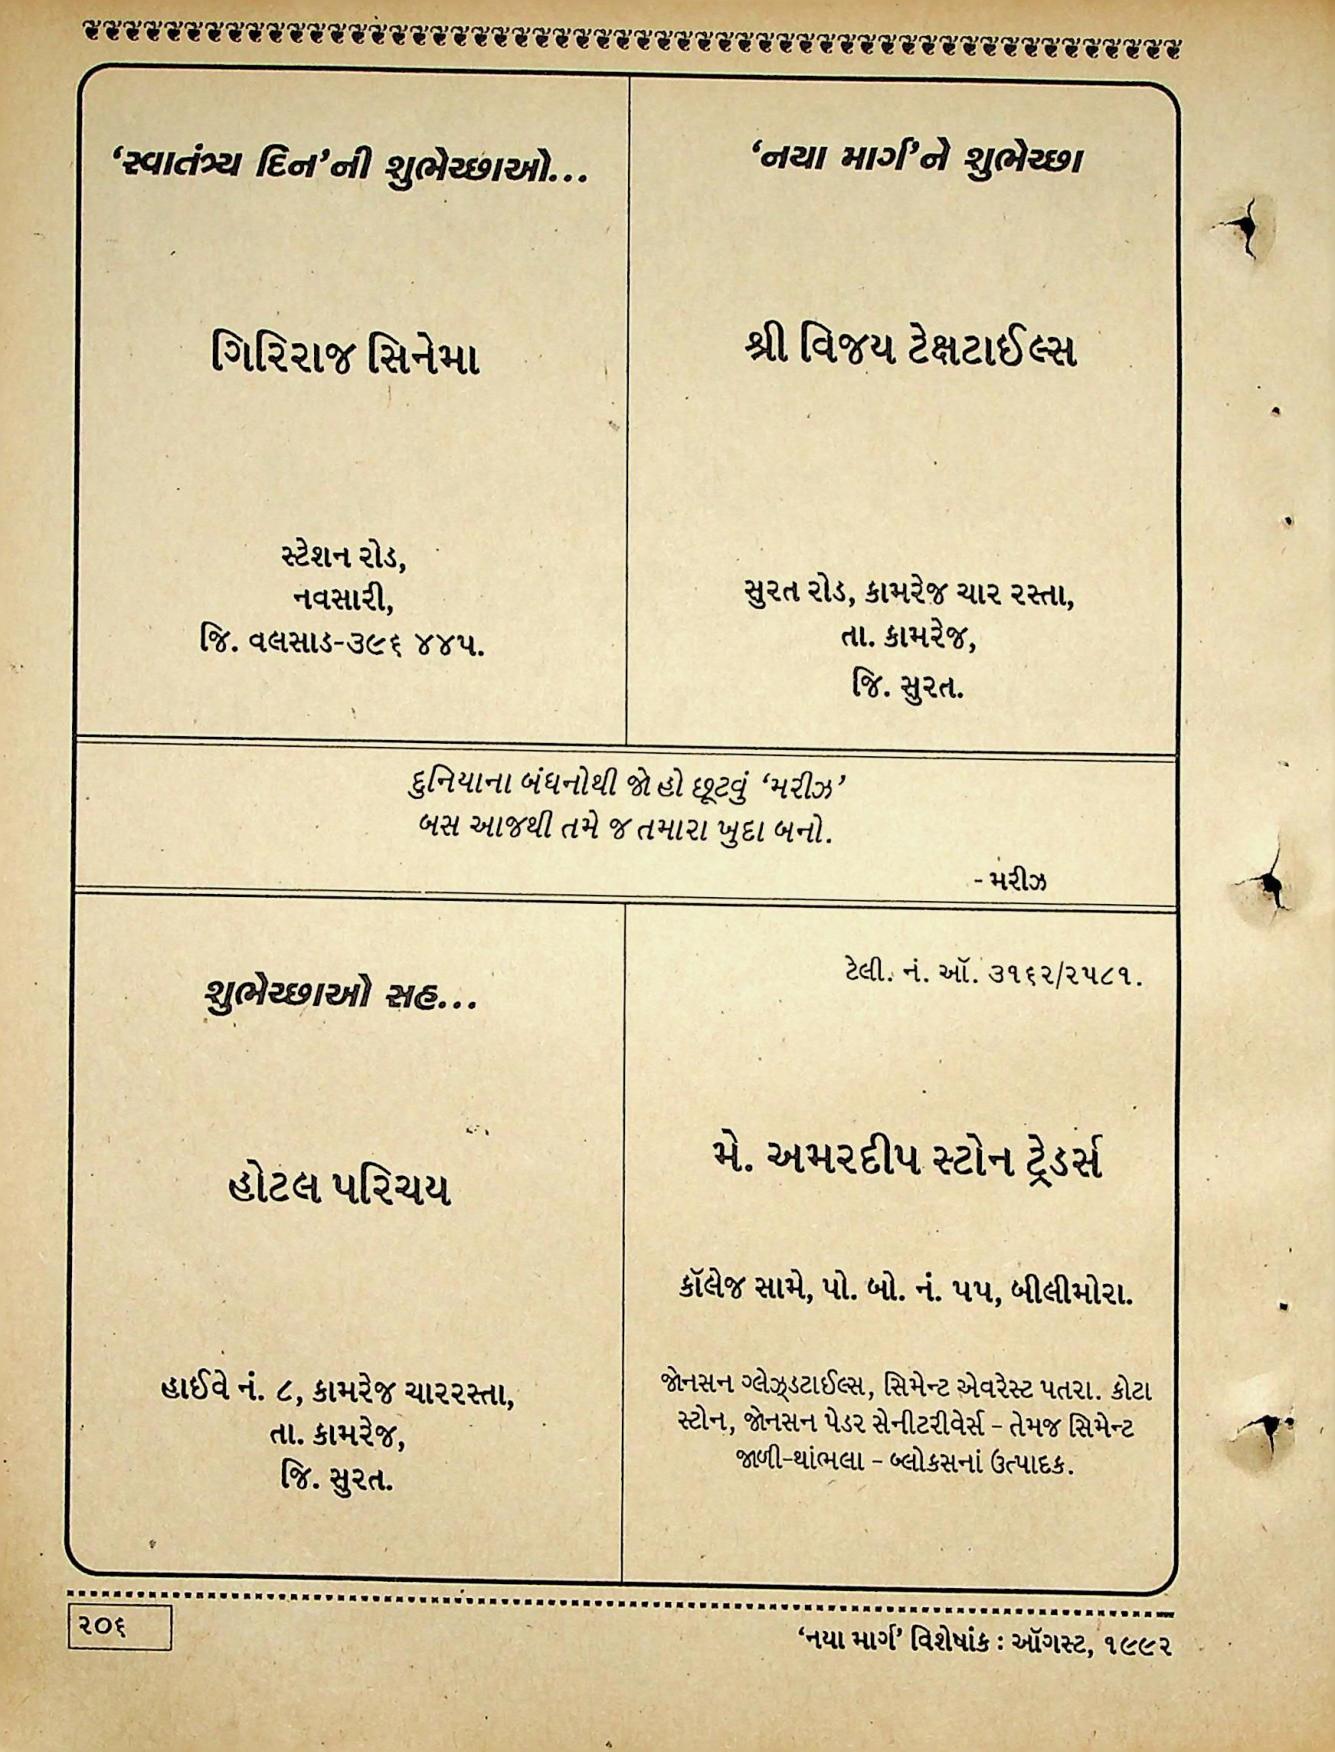 ‘સ્વાતંત્ર્ય દિન’ની શુભેચ્છાઓ...
ગિરિરાજ સિનેમા
સ્ટેશન રોડ,
નવસારી,
જિ. વલસાડ-૩૯૬ ૪૪૫.
‘નયા માર્ગ’ને શુભેચ્છા
શ્રી વિજય ટેક્ષટાઈલ્સ
સુરત રોડ, કામરેજ ચાર રસ્તા,
તા. કામરેજ,
જિ. સુરત.
દુનિયાના બંધનોથી જો હો છૂટવું ‘મરીઝ’
બસ આજથી તમે જ તમારા ખુદા બનો.
- મરીઝ
શુભેચ્છાઓ સહ...
હોટલ પરિચય
હાઈવે નં. ૮, કામરેજ ચારરસ્તા,
તા. કામરેજ,
જિ. સુરત.
ટેલી. નં. ઑ. ૩૧૬૨/૨૫૮૧.
મે. અમરદીપ સ્ટોન ટ્રેડર્સ
કૉલેજ સામે, પો. બો. નં. ૫૫, બીલીમોરા.
જોનસન ગ્લેઝ્ડટાઈલ્સ, સિમેન્ટ એવરેસ્ટ પતરા. કોટા
સ્ટોન, જોનસન પેડર સેનીટરીવેર્સ - તેમજ સિમેન્ટ
જાળી-થાંભલા - બ્લોકસનાં ઉત્પાદક.
૨૦૬
‘નયા માર્ગ’ વિશેષાંક : ઑગસ્ટ, ૧૯૯૨